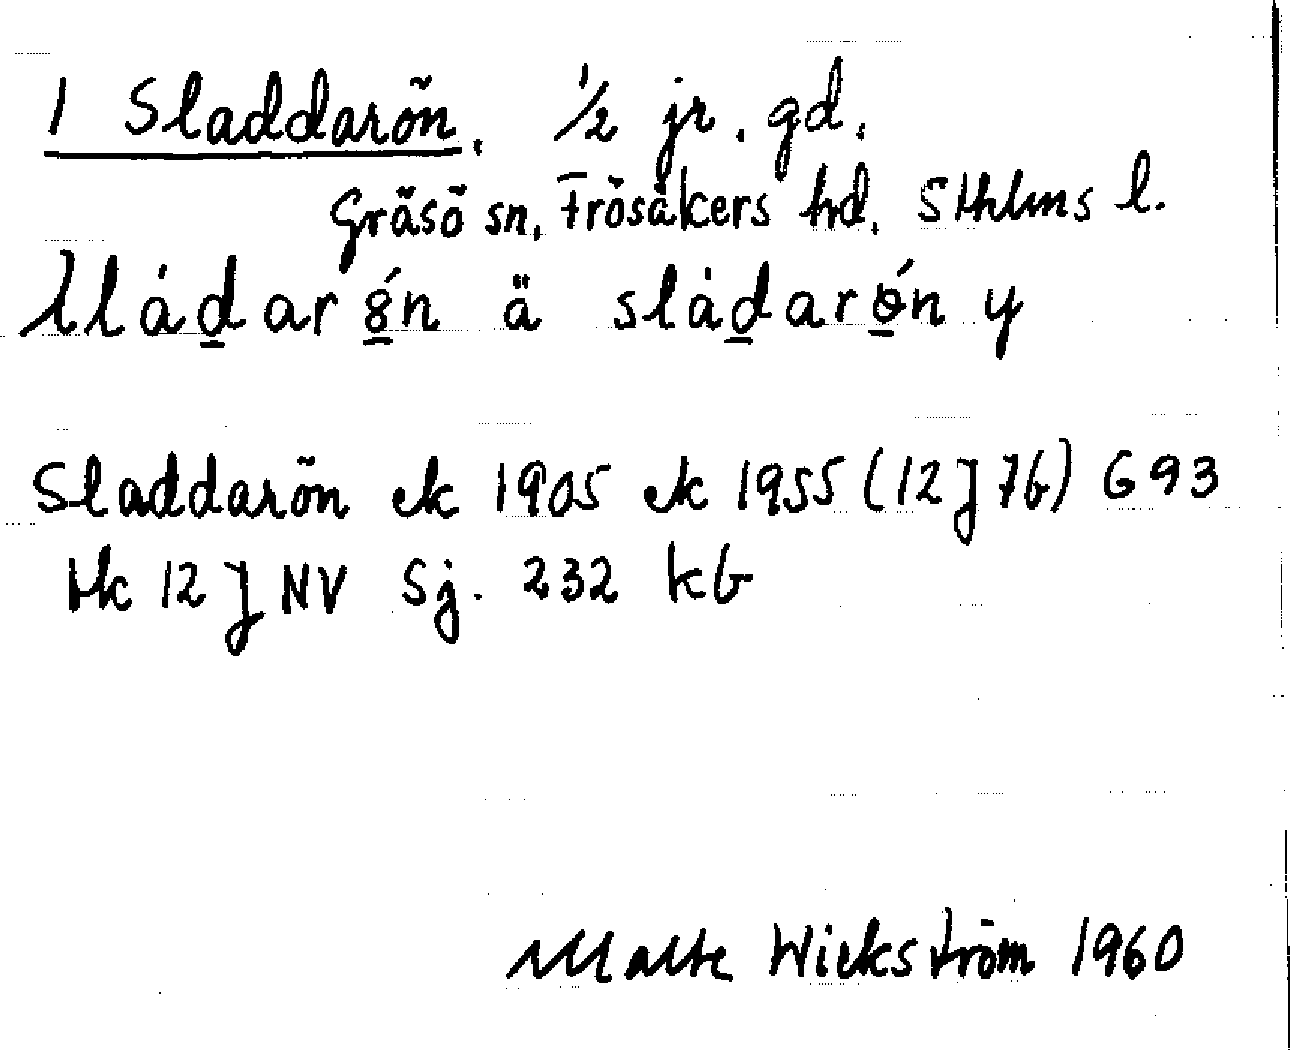 1 Sladdarön. 1/2 jr. gd.
Gräsö sn, Frösåkers hd. Sthlms l.
ä slàdarǿn y
Sladdarön ek 1905 ek 1955 (12 J 7b) G93
Hk 12 J NV Sj. 232 kb
Malte Wickström 1960